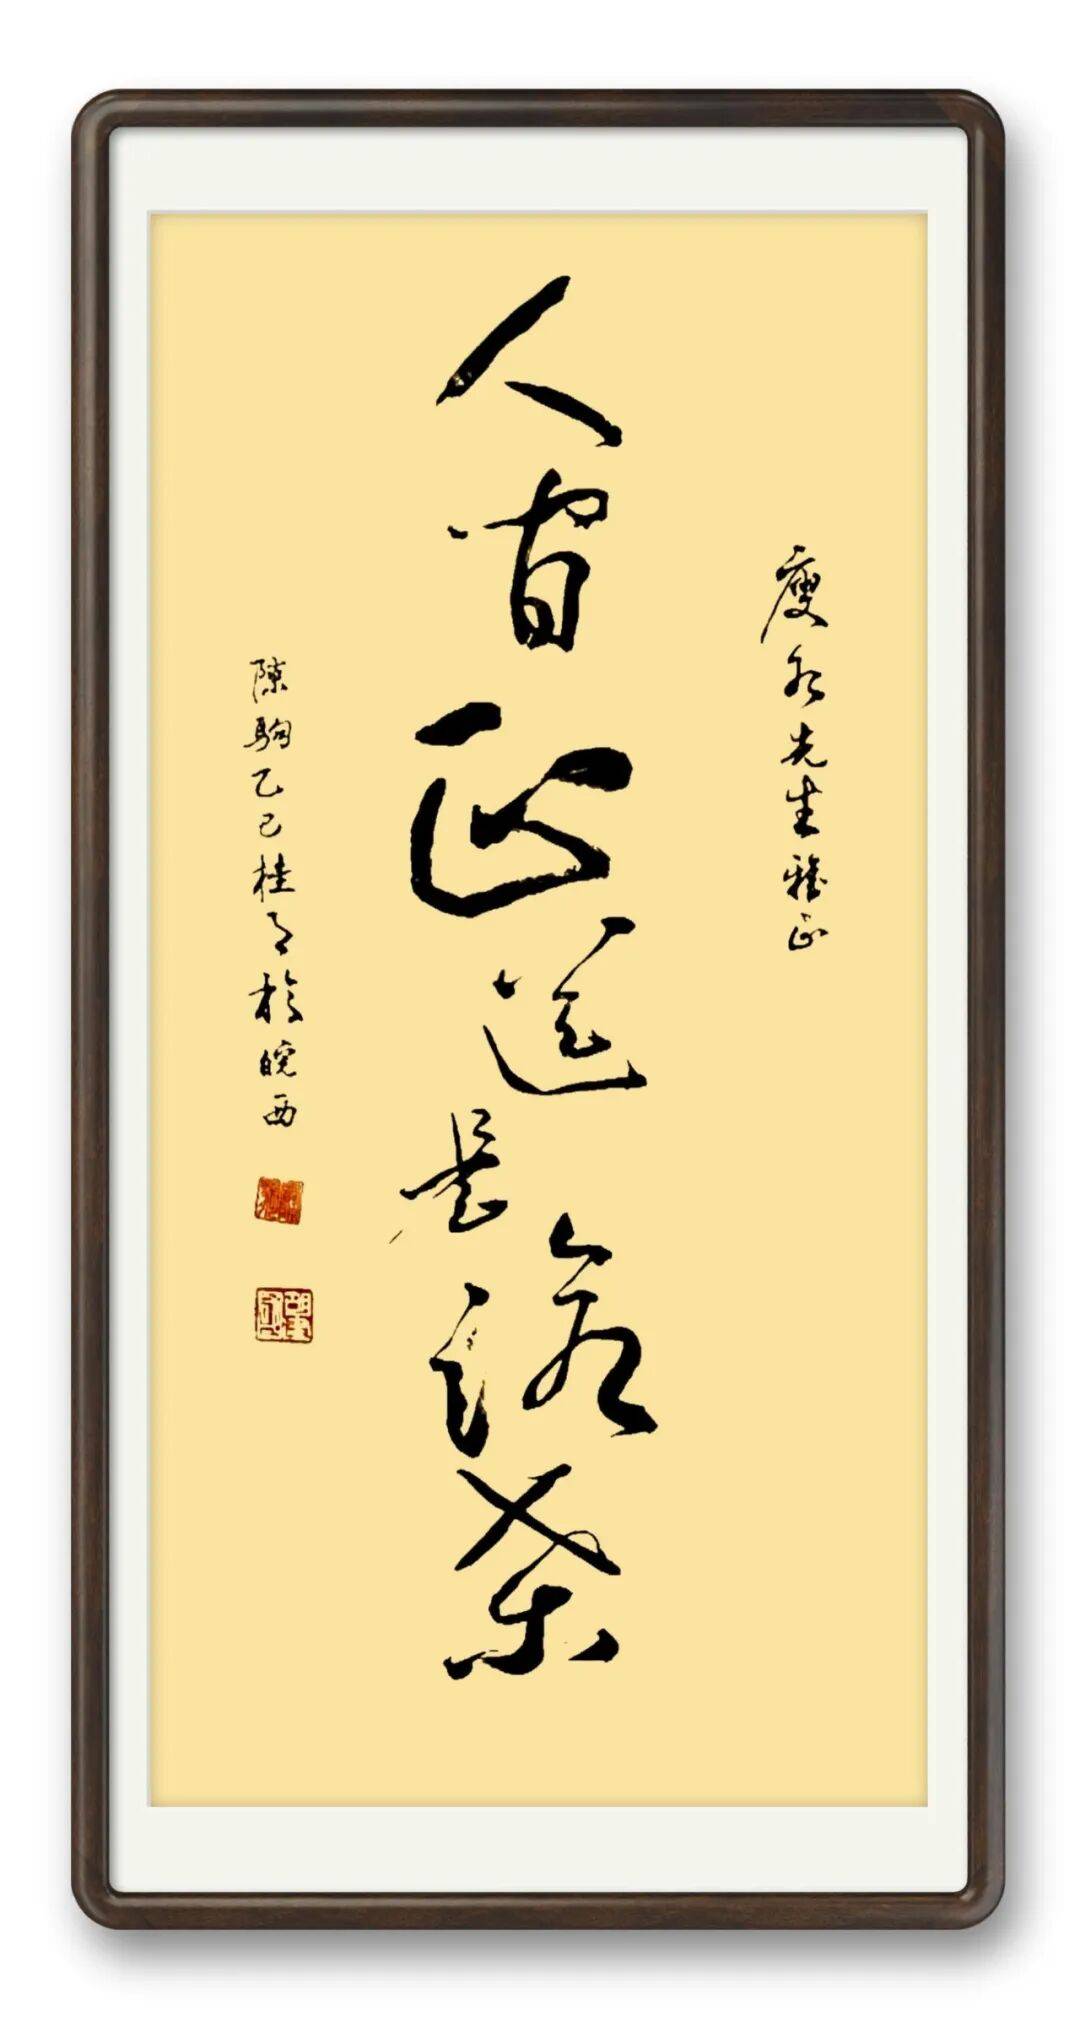 瘦水先生雅正
人間正道是滄桑
陳駒乙巳桂月於皖西